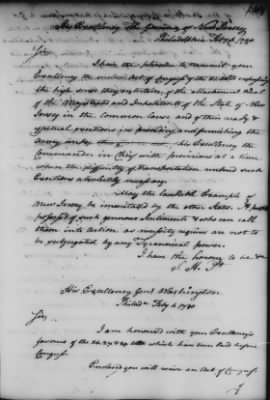 His Excellency The Governor of New Jersey
Philadelphia Feby 4 1780
Sir,
I have the pleasure to transmit your
Excellency the enclosed Act of Congress of the expressing
the high sense they entertain of the attachment & Zeal
of the Magistrates and Inhabitants of the State of New
Jersey in the common cause and of their ready &
effectual exertions in providing and furnishing the
Army under his Excellency the
Commander in Chief with provisions at a time
when the difficulty of transportation rendered such
Exertions absolutely necessary.
May the laudable Example of
New Jersey be immitated by the other States. A people
possessed of such generous Sentiments & who can call
them into Action as necessity requires are not to
be subjugated by any Tyrannical power.
I have the honour to be &c
S. H. Pt
His Excellency Genl Washington
Philada Feby 4 1780
Sir,
I am honoured with your Excellency's
favours of the 26 27 & 29 which have been laid before
Congress.
Enclosed you will receive an Act of Congress